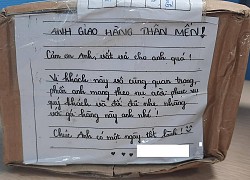 ANH GIAO HÀNG THÂN MẾN!
Cảm ơn Anh, vất vả cho anh quá!
Vì khách này vô cùng quan trọng,
phiền anh mang theo nụ cười phục vụ
quý khách và đối đãi nhẹ nhàng
với gói hàng này anh nhé!
Chúc Anh có một ngày tốt lành!